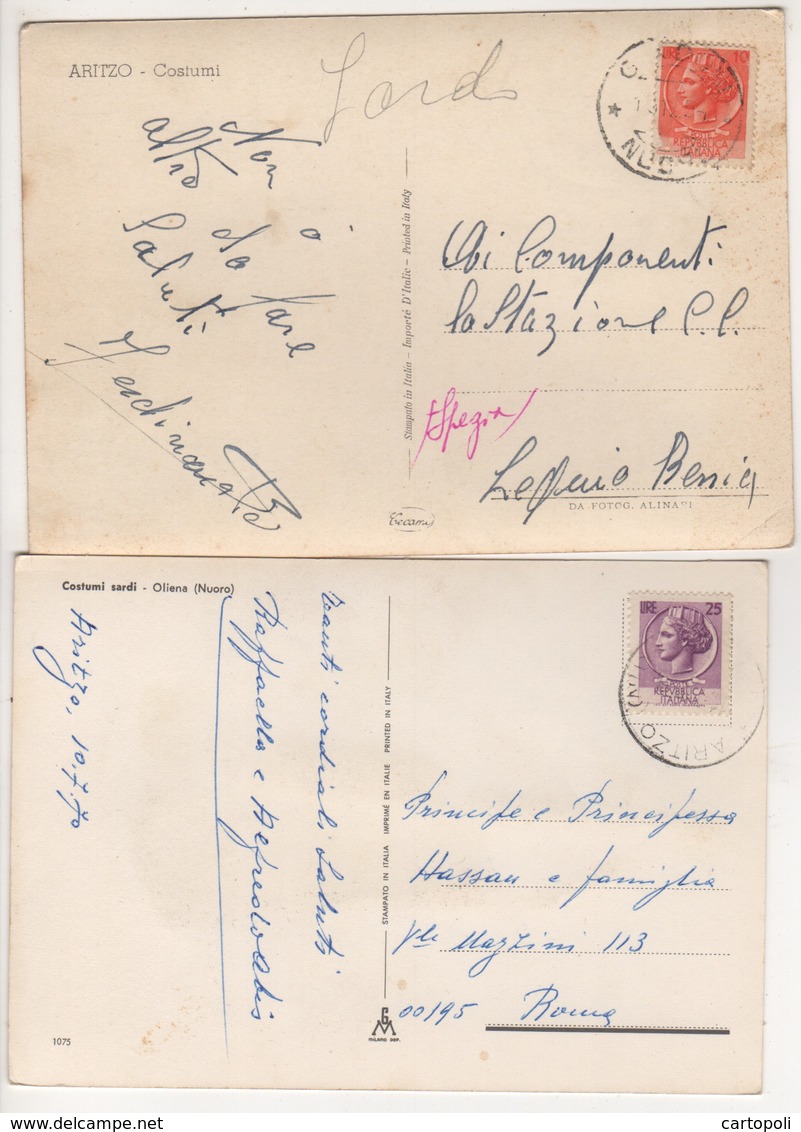 ARITZO - Costumi
Non ò
altro da fare
Saluti
LIRE 10
POSTE
REPVBBLICA
ITALIANA
Ai Componenti
la Stazione C.C.
Spezia
Stampato in Italia - Importé D'Italie - Printed in Italy
DA FOTOG. ALINARI
Cecami
Costumi sardi - Oliena (Nuoro)
Aritzo, 10.7.70
Tanti cordiali saluti
Raffaella e
LIRE 25
POSTE
REPVBBLICA
ITALIANA
ARITZO (NU)
STAMPATO IN ITALIA IMPRIMÉ EN ITALIE PRINTED IN ITALY
Principe e Principessa
Hassan e famiglia
Vle Mazzini 113
00195 Roma
1075
GM
MILANO DEP.
www.delcampe.net
cartopoli